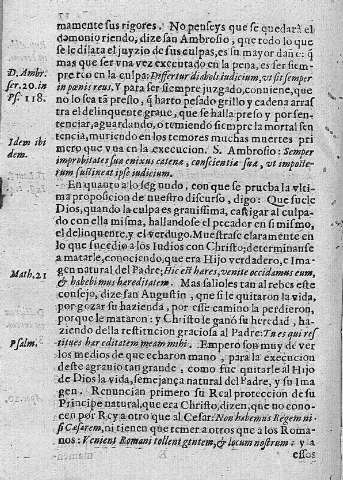 mamente sus rigores. No penseys que se quedarà el
demonio riendo, dize san Ambrosio, que todo lo que
se le dilata el juyzio de sus culpas, es su mayor dañe: q̃
mas que ser vna vez executado en la pena, es ser siem-
pre reo en la culpa: Differtur diaboli iudicium, vt sit semper
in pœnis reus. Y para ser siempre juzgado, conuiene, que
no lo sea tã presto, q̃ harto pesado grillo y cadena arras
tra el delinquente graue, que se halla preso y por sen-
tenciar, aguardando, o temiendo siempre la mortal sen
tencia, muriendo en los temores muchas muertes pri
mero que vna en la execucion. S. Ambrosio: Semper
improbitate sua enixus catena, conscientiæ suæ, vt imposte-
rum sustineat ipse iudicium.
D. Ambr.
ser. 20. in
Ps. 118.
Idem ibi
dem.
En quanto a lo segundo, con que se prueba la vlti-
ma proposicion de nuestro discurso, digo: Que suele
Dios, quando la culpa es grauissima, castigar al culpa-
do con ella misma, hallandose el pecador en si mismo,
el delinquente, y el verdugo. Muestrase claramente en
lo que sucedio a los Iudios con Christo; determinanse
a matarle, conociendo, que era Hijo verdadero, e Ima
gen natural del Padre: Hic est hæres, venite occidamus eum,
& habebimus hæreditatem. Mas salioles tan al rebes este
consejo, dize san Augustin, que si le quitaron la vida,
por gozar su hazienda, por esse camino la perdieron,
porque le mataron: y Christo le ganò su heredad, ha-
ziendo della restitucion graciosa al Padre: Tu es qui res
titues hæreditatem meam mihi. Empero son muy de ver
los medios de que echaron mano, para la execucion
deste agrauio tan grande, como fue quitarle al Hijo
de Dios la vida, semejança natural del Padre, y su Ima
gen. Renuncian primero su Real proteccion de su
Principe natural, que era Christo, dizen, que no cono-
cen por Rey a otro que al Cesar: Non habemus Regem ni-
si Cæsarem, ni tienen que temer a otros que a los Roma-
nos: Venient Romani tollent gentem, & locum nostrum: y a
essos
Math. 21
Psalm.